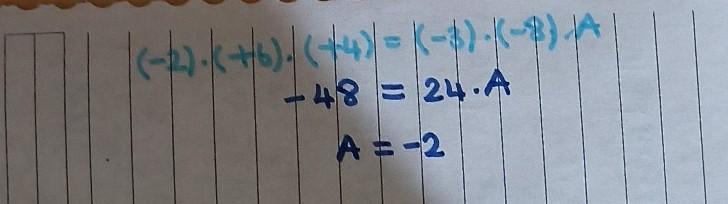 (-2).(+6).(+4) = (-3).(-8).A
-48 = 24.A
A = -2